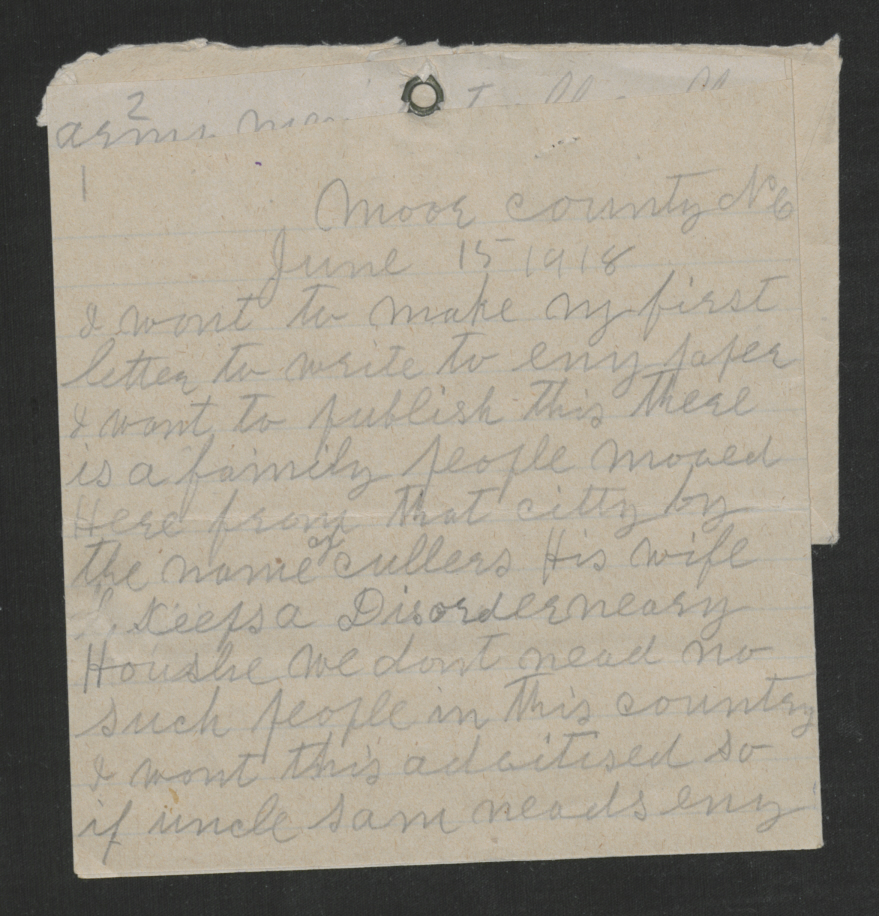 2
army men
1
Moor county NC
June 15 1918
I wont to make my first
letter to write to eny paper
I wont to publish this there
is a family people moved
Here from that citty by
the name of cullers His wife
Keeps a Disorderneary
Houshe we dont nead no
such people in this country
I wont this advitised so
if uncle sam neads eny